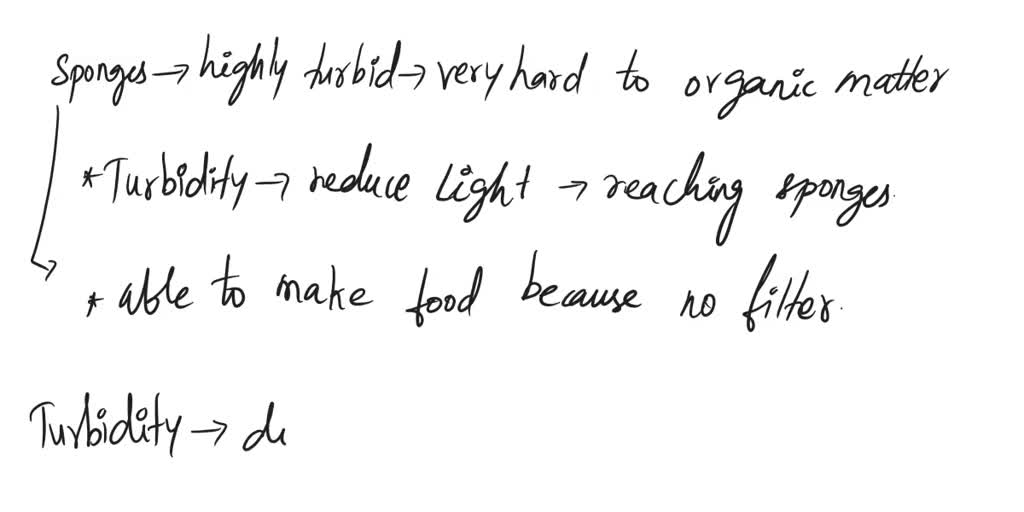 Sponges → highly turbid → very hard to organic matter
* Turbidity → reduce Light → reaching sponges.
* able to make food because no filter.
Turbidity → de